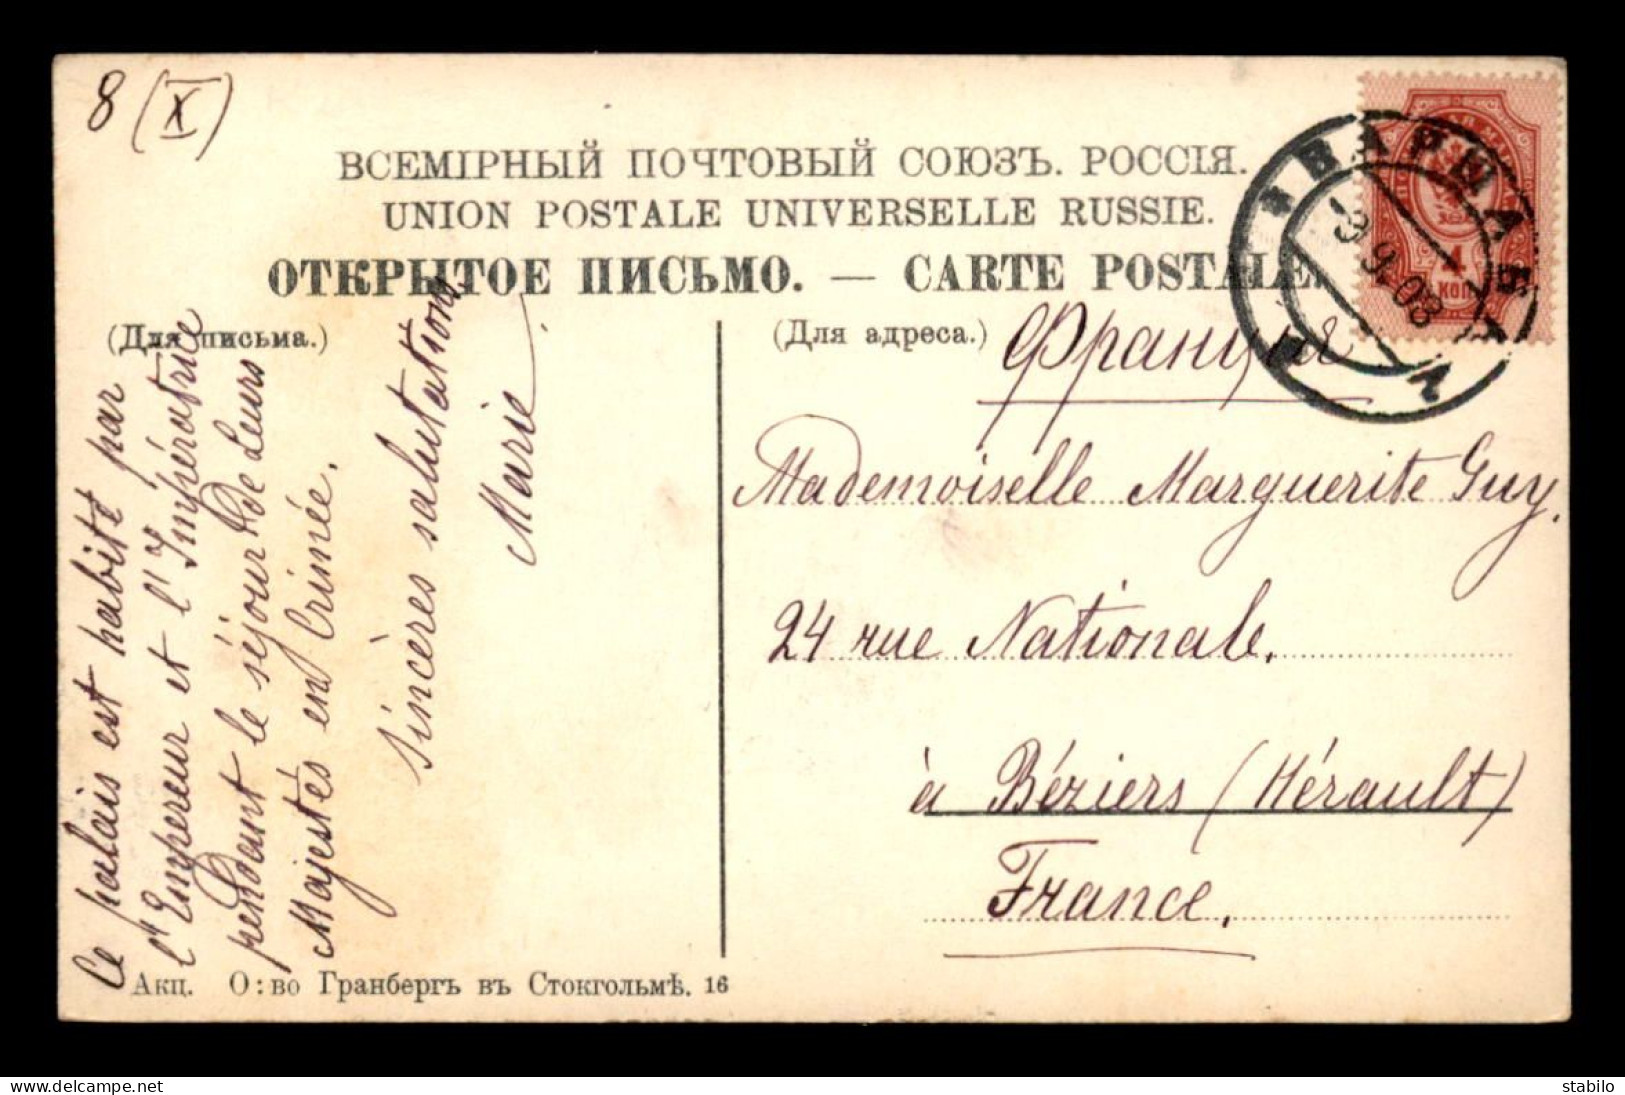 8 (X)
ВСЕМІРНЫЙ ПОЧТОВЫЙ СОЮЗЪ. РОССІЯ.
UNION POSTALE UNIVERSELLE RUSSIE.
ОТКРЫТОЕ ПИСЬМО. — CARTE POSTALE.
(Для письма.)
(Для адреса.)
Ce palais est habité par
l'Empereur et l'Impératrice
pendant le séjour de Leurs
Majestés en Crimée.
Sincères salutations
Marie
Франція
Mademoiselle Marguerite Guy.
24 rue Nationale.
à Béziers (Hérault)
France.
ВАРШАВА
9 9 08
4
КОП
Акц. О:во Гранбергъ въ Стокгольмѣ. 16
delcampe.net
stabilo